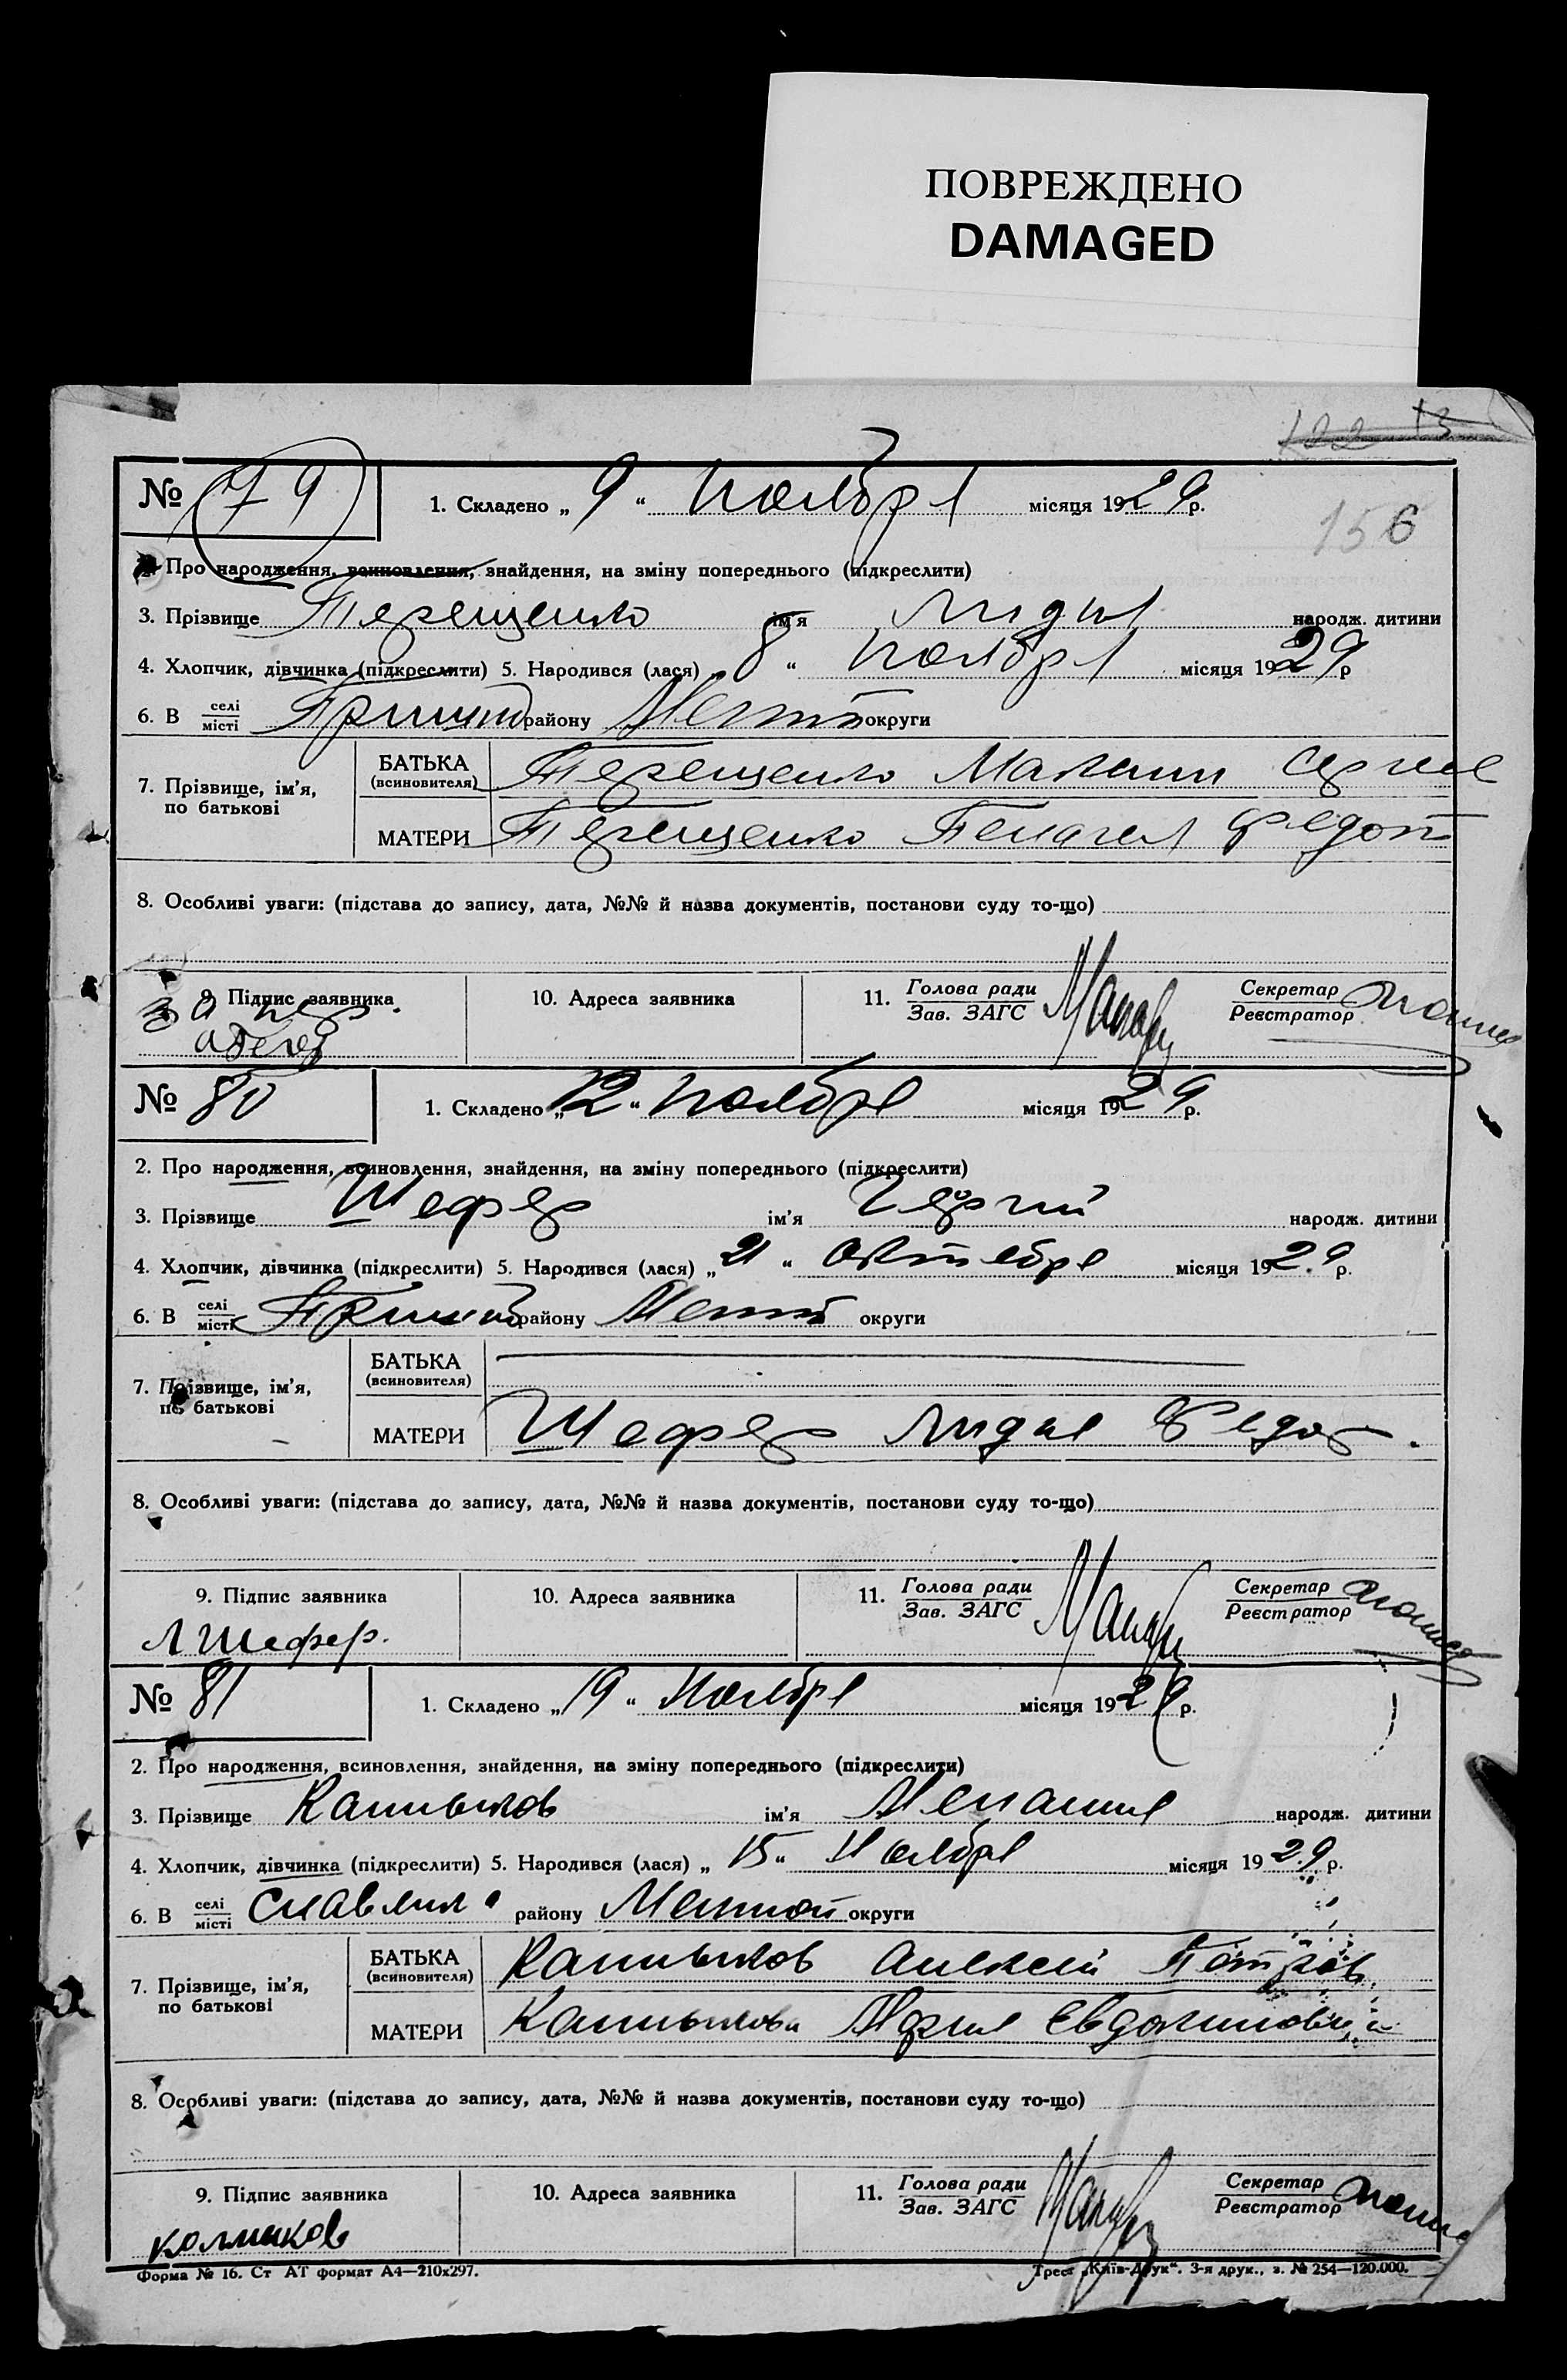 ПОВРЕЖДЕНО
DAMAGED
122 13
№ 79 1. Складено „ 9 “ Ноября місяця 1929 р.
156
2. Про народження, всиновлення, знайдення, на зміну попереднього (підкреслити)
3. Прізвище Терещенко ім'я Лидия народж. дитини
4. Хлопчик, дівчинка (підкреслити) 5. Народився (лася) „ 8 “ Ноября місяця 1929 р
6. В селі місті Пришиб району Мелит округи
7. Прізвище, ім'я, по батькові
БАТЬКА (всиновителя) Терещенко Максим Сергее
МАТЕРИ Терещенко Пелагея Федот
8. Особливі уваги: (підстава до запису, дата, №№ й назва документів, постанови суду то-що)
9. Підпис заявника 10. Адреса заявника 11. Голова ради Зав. ЗАГС Секретар Реєстратор
за нег.
№ 80 1. Складено „ 12 “ Ноября місяця 1929 р.
2. Про народження, всиновлення, знайдення, на зміну попереднього (підкреслити)
3. Прізвище Шефер ім'я Георгий народж. дитини
4. Хлопчик, дівчинка (підкреслити) 5. Народився (лася) „ 21 “ Октября місяця 1929 р.
6. В селі місті Пришиб району Мелит округи
7. Прізвище, ім'я, по батькові
БАТЬКА (всиновителя)
МАТЕРИ Шефер Лидия Федор.
8. Особливі уваги: (підстава до запису, дата, №№ й назва документів, постанови суду то-що)
9. Підпис заявника 10. Адреса заявника 11. Голова ради Зав. ЗАГС Секретар Реєстратор
Л Шефер.
№ 81 1. Складено „ 19 “ Ноября місяця 1929 р.
2. Про народження, всиновлення, знайдення, на зміну попереднього (підкреслити)
3. Прізвище Калмыков ім'я Мелания народж. дитини
4. Хлопчик, дівчинка (підкреслити) 5. Народився (лася) „ 15 “ Ноября місяця 1929 р.
6. В селі місті району Мелитоп округи
7. Прізвище, ім'я, по батькові
БАТЬКА (всиновителя) Калмыков Алексей Петров
МАТЕРИ Калмыкова Мария Евдокимовна
8. Особливі уваги: (підстава до запису, дата, №№ й назва документів, постанови суду то-що)
9. Підпис заявника 10. Адреса заявника 11. Голова ради Зав. ЗАГС Секретар Реєстратор
колмиков
Форма № 16. Ст АТ формат А4—210х297. Трест „Київ-Друк“. 3-я друк., з. № 254—120.000.